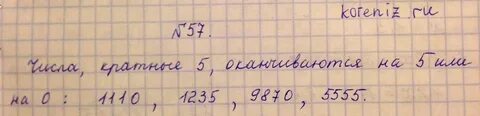 koreniz.ru
№57.
Числа, кратные 5, оканчиваются на 5 или
на 0: 1110, 1235, 9870, 5555.